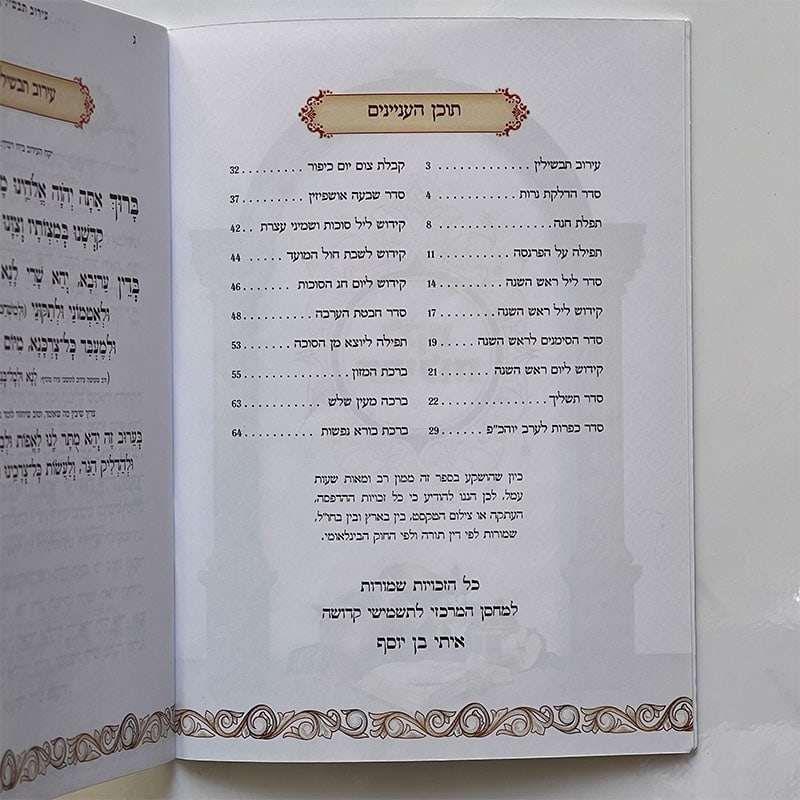 תוכן העניינים
עירוב תבשילין . . . . . . . . . . 3
סדר הדלקת נרות . . . . . . . . 4
תפלת חנה . . . . . . . . . . . . . . 8
תפילה על הפרנסה . . . . . . . 11
סדר ליל ראש השנה . . . . . . 14
קידוש ליל ראש השנה . . . . 17
סדר הסימנים לראש השנה . . 19
קידוש ליום ראש השנה . . . . 21
סדר תשליך . . . . . . . . . . . . . 22
סדר כפרות לערב יוהכ"פ . . . . . . 29
קבלת צום יום כיפור . . . . . . . . . 32
סדר שבעה אושפיזין . . . . . . . . . 37
קידוש ליל סוכות ושמיני עצרת . . 42
קידוש לשבת חול המועד . . . . . 44
קידוש ליום חג הסוכות . . . . . . . 46
סדר חבטת הערבה . . . . . . . . . . 48
תפילה ליוצא מן הסוכה . . . . . . 53
ברכת המזון . . . . . . . . . . . . . . . 55
ברכה מעין שלש . . . . . . . . . . . . 63
ברכת בורא נפשות . . . . . . . . . . 64
כיון שהושקע בספר זה ממון רב ומאות שעות
עמל, לכן הננו להודיע כי כל זכויות ההדפסה,
העתקה או צילום הטקסט, בין בארץ ובין בחו"ל,
שמורות לפי דין תורה ולפי החוק הבינלאומי.
כל הזכויות שמורות
למחסן המרכזי לתשמישי קדושה
איתי בן יוסף
עירוב תבשילין
ג
עירוב תבשילין
בָּרוּךְ אַתָּה יְהֹוָה אֱלֹהֵינוּ
קִדְּשָׁנוּ בְּמִצְוֹתָיו וְצִוָּנוּ
בְּדֵין עֵרוּבָא, יְהֵא שָׁרֵי לָנָא
וּלְאַטְמוֹנֵי וּלְתַקּוּנֵי
וּלְמֶעְבַּד כָּל־צָרְכָּנָא, מִיּוֹם
בָּעֵרוּב זֶה יְהֵא מֻתָּר לָנוּ לֶאֱפוֹת
וּלְהַדְלִיק הַנֵּר, וְלַעֲשׂוֹת כָּל־צְרָכֵינוּ